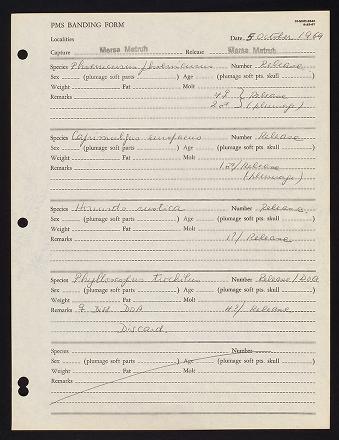 PMS BANDING FORM
Localities Date 5 October 1969
Capture Mersa Matruh Release Mersa Matruh
Species Phoenicurus phoenicurus Number Release
Sex (plumage soft parts) Age (plumage soft pts. skull
Weight Fat Molt
Remarks 4♀ } Release
2♂ } (plumage)
Species Caprimulgus europaeus Number Release
Sex (plumage soft parts) Age (plumage soft pts. skull
Weight Fat Molt
Remarks 1♂/ Release
(plumage)
Species Hirundo rustica Number Release
Sex (plumage soft parts) Age (plumage soft pts. skull
Weight Fat Molt
Remarks 1?/ Release
Species Phylloscopus trochilus Number Release/DOA
Sex (plumage soft parts) Age (plumage soft pts. skull
Weight Fat Molt
Remarks DOA Release
Discard
Species Number
Sex (plumage soft parts) Age (plumage soft pts. skull
Weight Fat Molt
Remarks